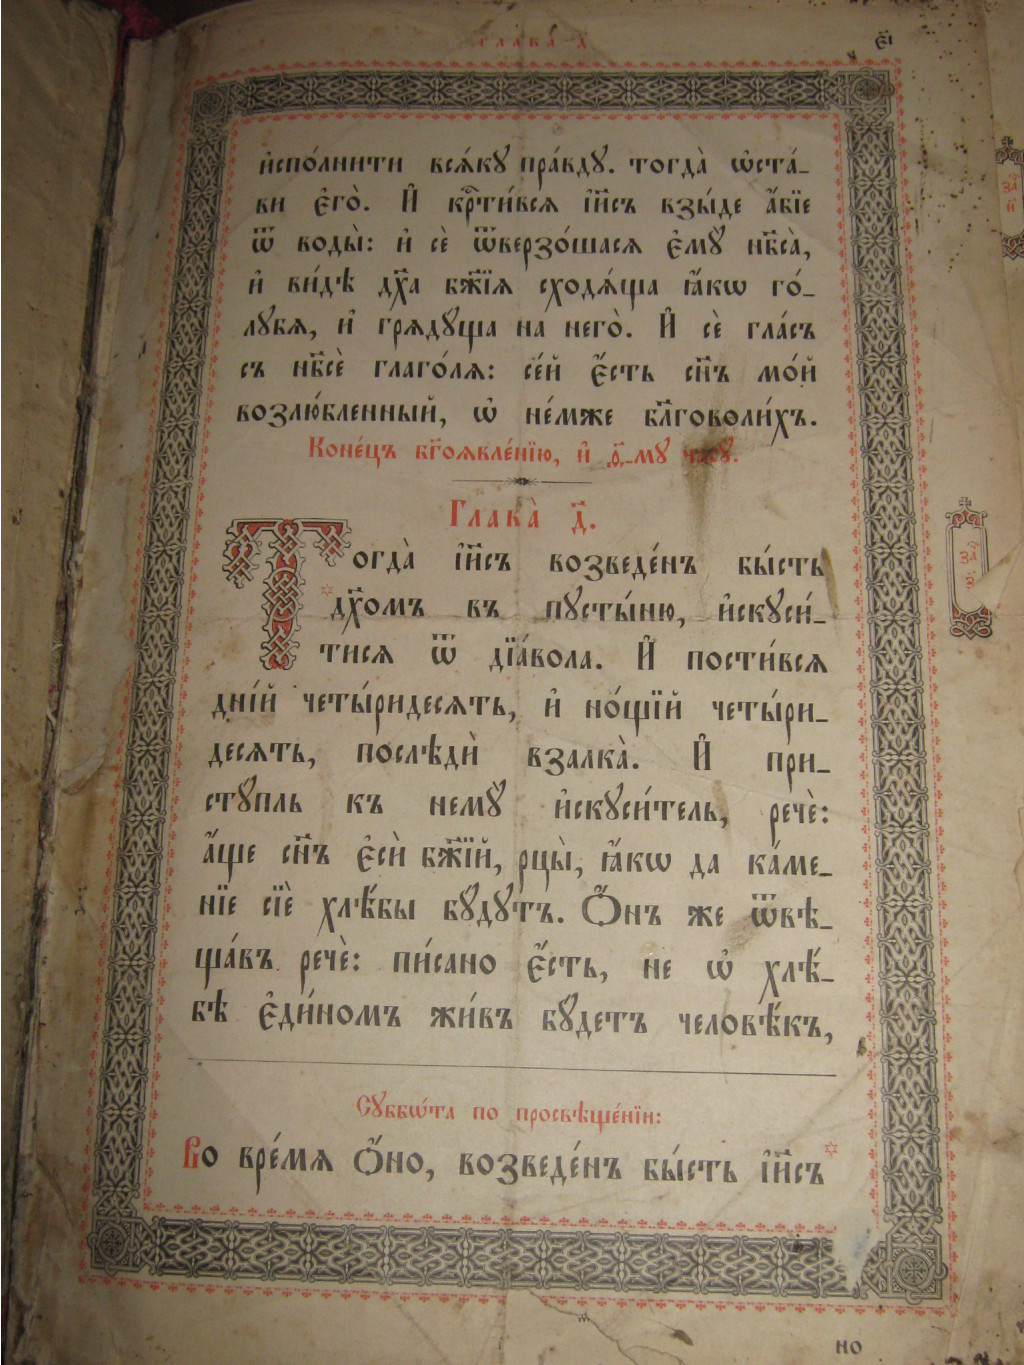 ГЛАВА Д҃
є҃і
и҆спо́лнити всѧ́кꙋ пра́вдꙋ. тогда̀ ѡ҆ста́-
ви є҆го̀. И҆ кр҃ти́всѧ і҆и҃съ взы́де а҆́бїе
ѿ воды̀: и҆ сѐ ѿверзо́шасѧ є҆мꙋ̀ нб҃са̀,
и҆ ви́дѣ дх҃а бж҃їѧ сходѧ́ща ꙗ҆́кѡ го́-
лꙋбѧ, и҆ грѧдꙋ́ща на него̀. И҆ сѐ гла́съ
съ нб҃сѐ глаго́лѧ: се́й є҆́сть сн҃ъ мо́й
возлю́бленный, ѡ҆ не́мже бл҃говоли́хъ.
Коне́цъ бг҃оѧвле́нїю, и҆ д҃-мꙋ часꙋ̀.
Глава̀ д҃.
Тогда̀ і҆и҃съ возведе́нъ бы́сть
дх҃омъ въ пꙋсты́ню, и҆скꙋси́-
тисѧ ѿ дїа́вола. И҆ пости́всѧ
дні́й четы́ридесѧть, и҆ но́щїй четы́ри-
десѧть, послѣдѝ взалка̀. И҆ при-
стꙋпль къ немꙋ̀ и҆скꙋси́тель, речѐ:
а҆́ще сн҃ъ є҆сѝ бж҃їй, рцы̀, ꙗ҆́кѡ да ка́ме-
нїе сїѐ хлѣ́бы бꙋ́дꙋтъ. Ѻ҆́нъ же ѿвѣ-
ща́въ речѐ: пи́сано є҆́сть, не ѡ҆ хлѣ́-
бѣ є҆ди́номъ жи́въ бꙋ́детъ человѣ́къ,
Сꙋббѡ́та по просвѣще́нїи:
Во вре́мѧ ѻ҆́но, возведе́нъ бы́сть і҆и҃съ
но